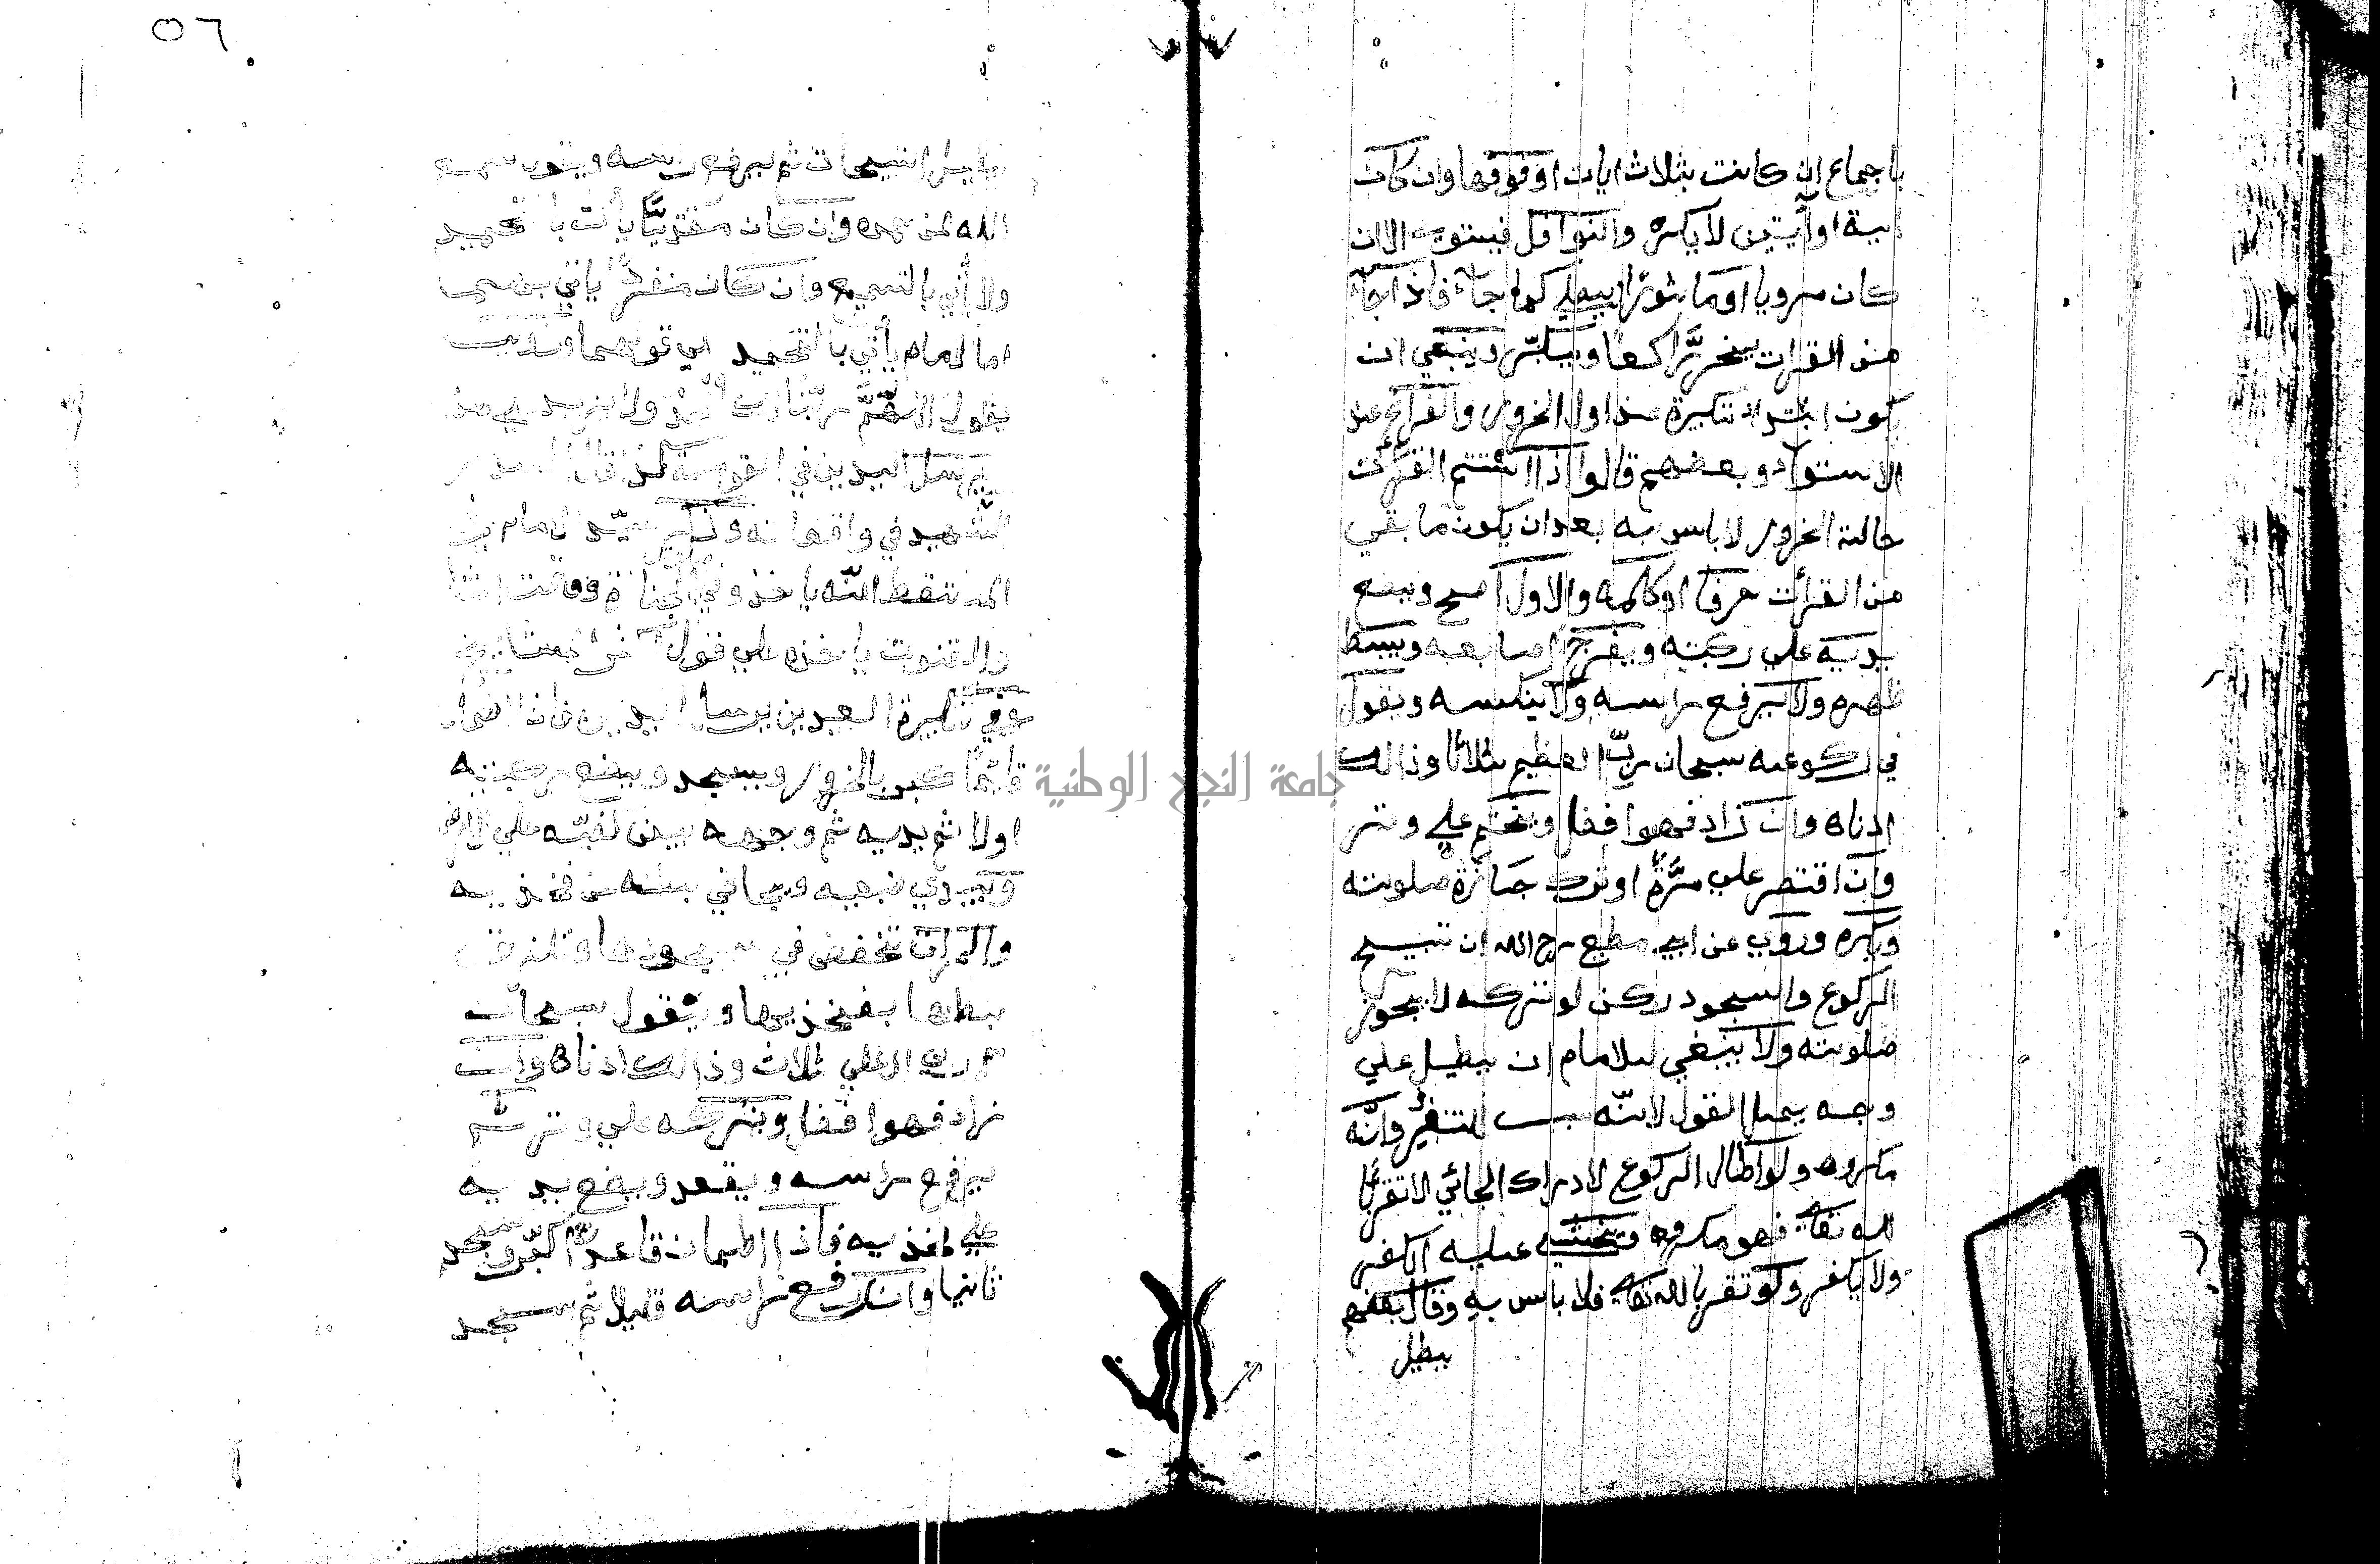 باجماع ان كانت بثلاث ايات او فوقها وان كان
اية او آيتين لا يكره والنوافل فيستوي الا ان
كان مرويا او ماثورا فيصلي كما جاء فاذا
من القرات يخر راكعا ويكبر وينبغي ان
يكون ابتداء تكبيرة عند اول الخرور والفراغ عند
الاستواء وبعضهم قالوا اذا اتم القرأت
حالة الخرور لا باس به بعد ان يكون ما بقي
من القرأت حرفا او كلمه والاول اصح ويضع
يديه علي ركبته ويفرج اصابعه ويبسط
ظهره ولا يرفع راسه ولا ينكسه ويقول
في ركوعه سبحان ربي العظيم ثلاثا وذالك
ادناه وان زاد فهوا افضل ويختم علي وتر
وان اقتصر علي مرّة او ترك جازة صلوته
ويكره وروي عن ابي مطيع رح الله ان تسبيح
الركوع والسجود ركن لو تركه لا يجوز
صلوته ولا ينبغي للامام ان يطيل علي
وجه يمل القول لانّه سبب للتنفير وانّه
مكروه ولو اطال الركوع لادراك الجائي لا تقربا
لله تعا فهو مكروه ويخشي عليه الكفر
ولا يكفر ولو تقربا لله تعا فلا باس به وقال بعضهم
يطيل
جامعة النجاح الوطنية
٥٦
التسبيحات ثم يرفع راسه ويقول سمع
الله لمن حمده وان كان مقتديّا يأت بالتحميد
ولا يأتي بالتسميع وان كان منفردا ياتي بهما
اما الامام يأتي بالتحميد في قولهما
يقول اللهمّ ربّنا لك الحمد ولا يزيد علي هذا
يرسل اليدين في القومة كذا قال الصدر
الشهيد في واقعاته وذكر سيّد الامام في
الملتقط انّه ياخذ وفي الجنازة ووقت الثنا
والقنوت ياخذ علي قول اكثر المشايخ
وفي تكبيرة العيدين يرسل اليدين فاذا
قائما كبر بالخرور ويسجد ويضع ركبتيه
اولا ثم يديه ثم وجهه بين كفيّه علي الارض
ويبدي ضبعيه ويجافي بطنه عن فخذيه
والمرأة تنخفض في سجودها وتلزق
بطنها بفخذيها ويقول سبحان
ربي الاعلي ثلاث وذالك ادناه وان
زاد فهوا افضل ويتركه علي وتر ثم
يرفع راسه ويقعد ويضع يديه
علي فخذيه فاذا اطمان قاعدا كبّر وسجد
ثانيا وان رفع راسه قليلا ثم سجد